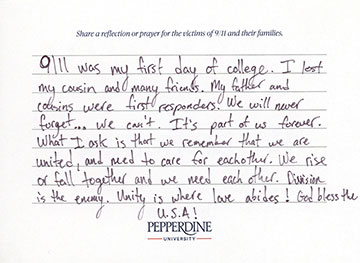 Share a reflection or prayer for the victims of 9/11 and their families.
9/11 was my first day of college. I lost
my cousin and many friends. My father and
cousins were first responders. We will never
forget... we can't. It's part of us forever.
What I ask is that we remember that we are
united, and need to care for eachother. We rise
or fall together and we need each other. Division
is the enemy. Unity is where love abides! God bless the
U.S.A!
PEPPERDINE
UNIVERSITY